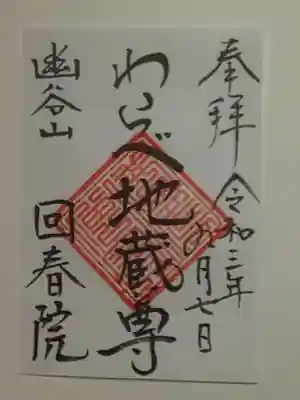 奉拝
令和三年 月七日
わらべ地蔵尊
幽谷山 回春院